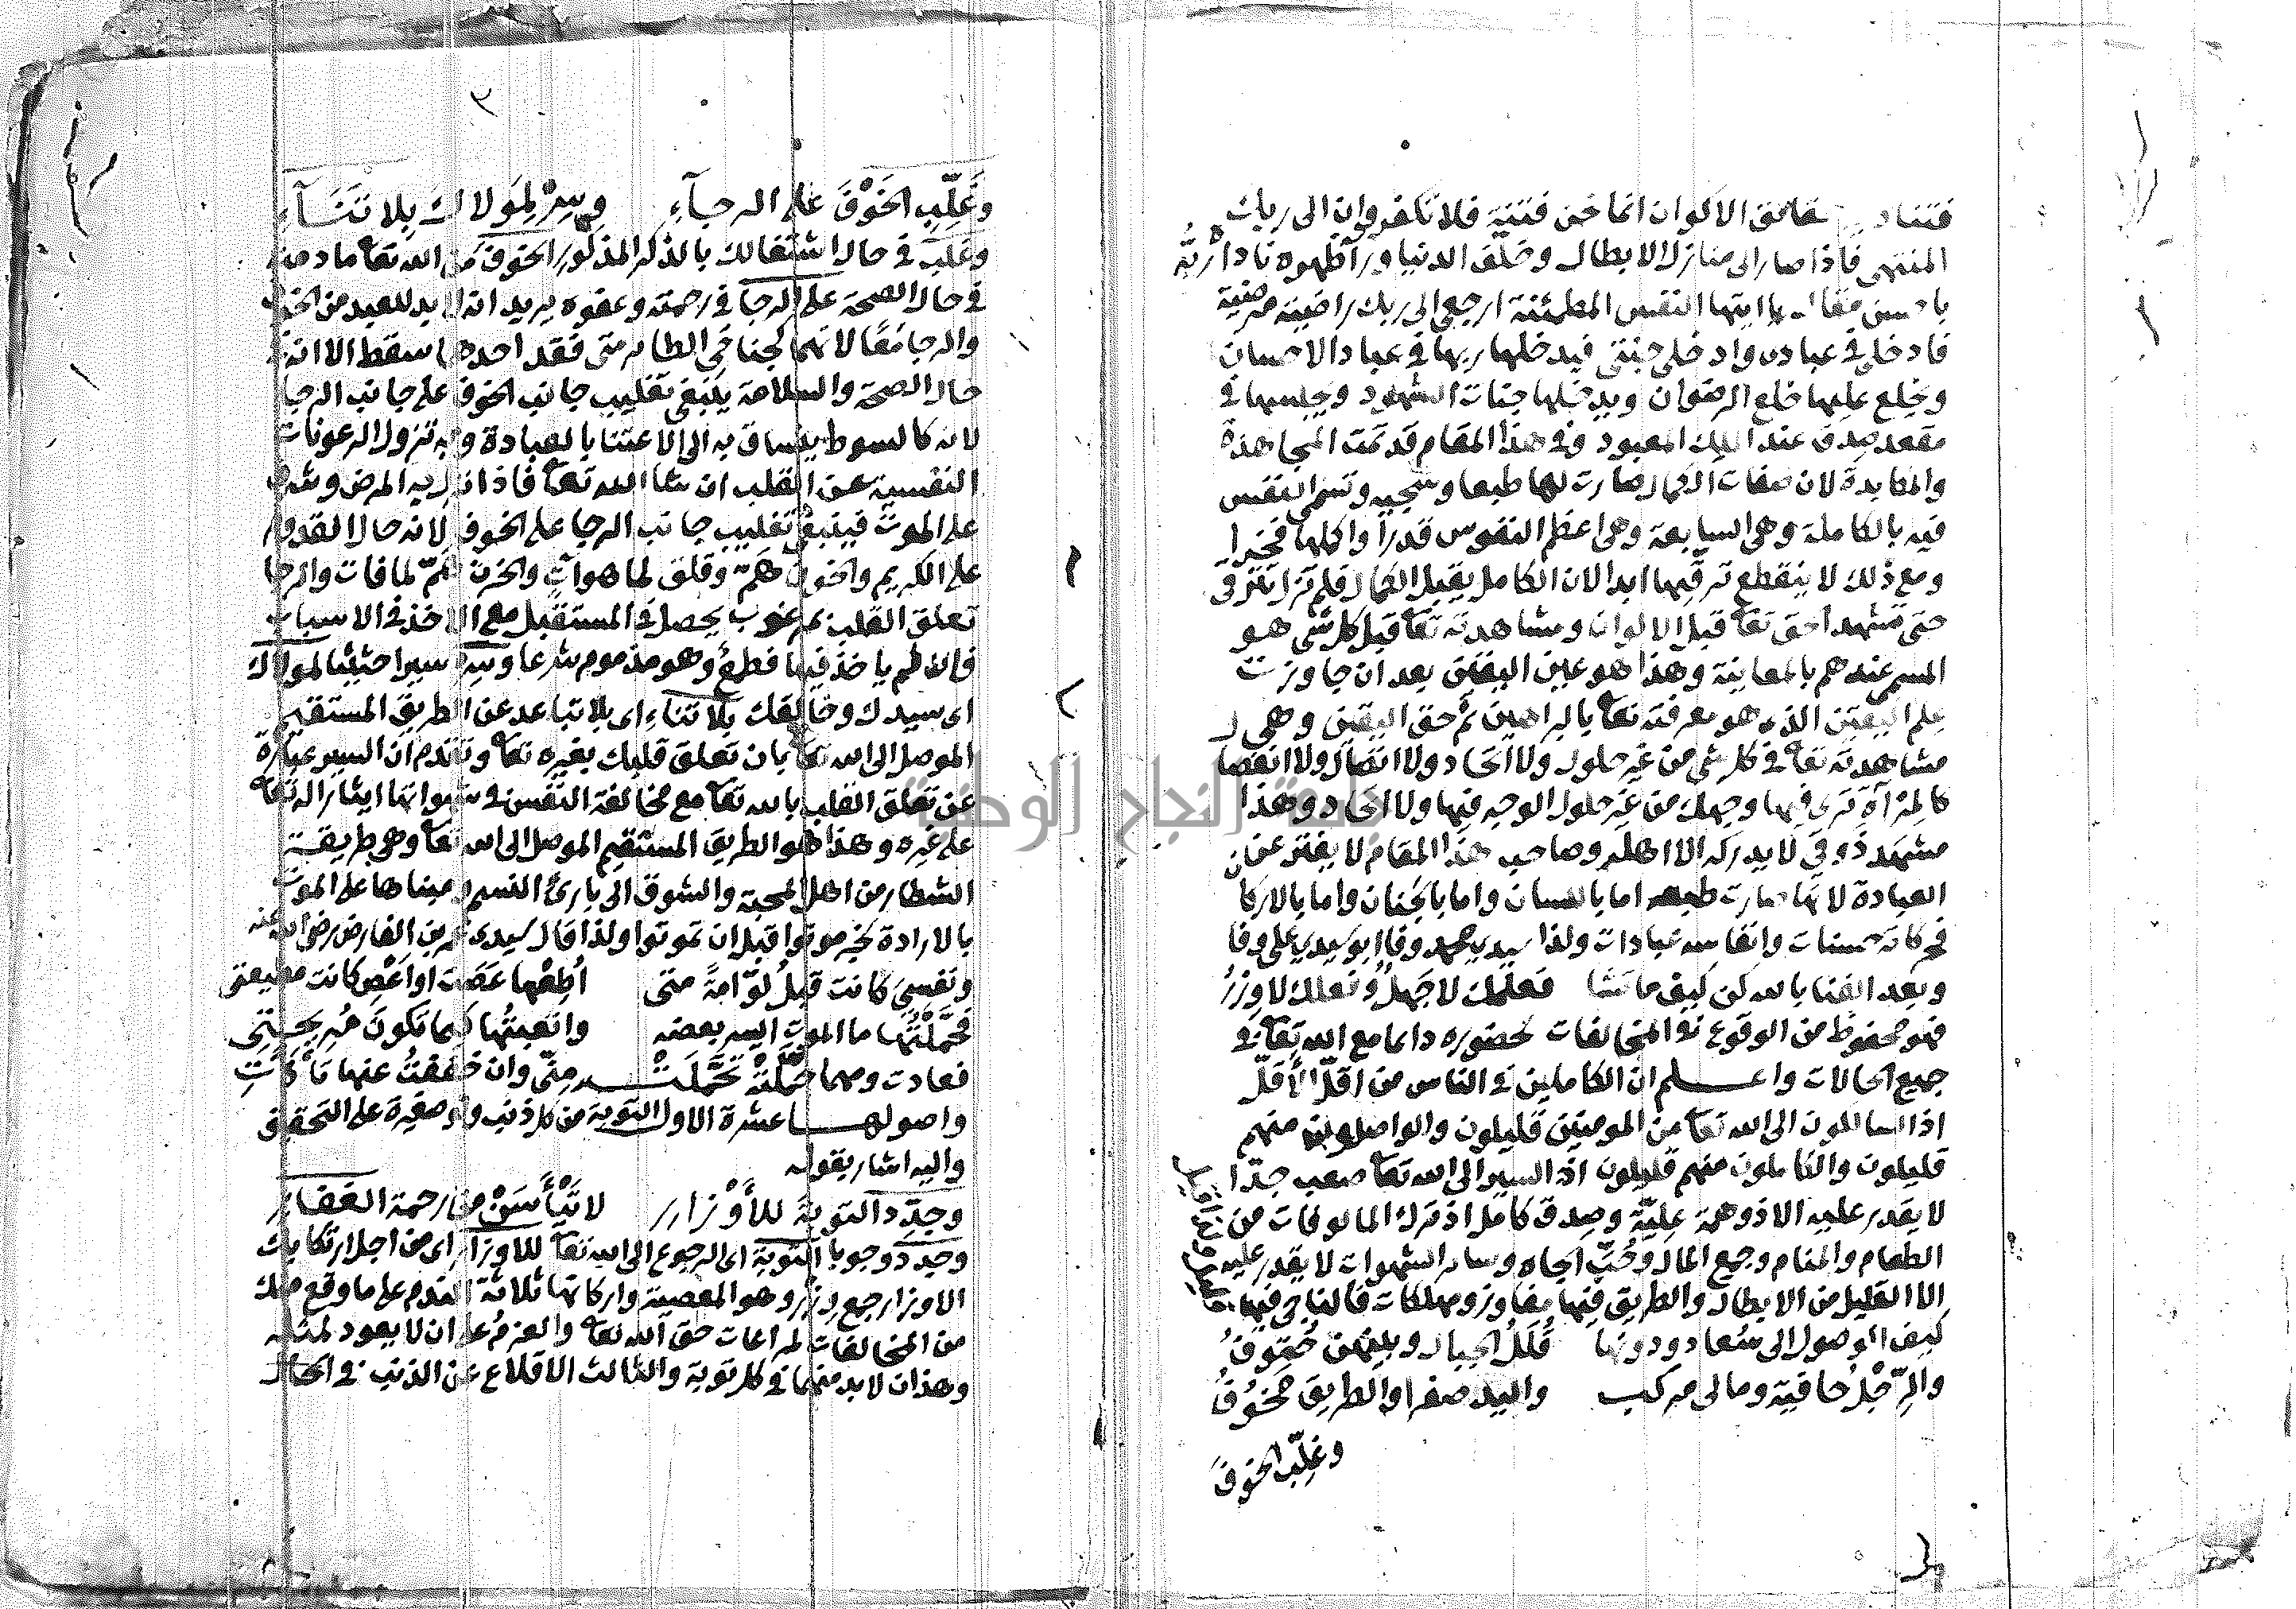 فتناديه حقائق الاكوان انما نحن فتنة فلا تكفر وان الى ربك
المنتهى فاذا صار الى منازل الابطال وخلّف الدنيا وراء ظهره ناداه ربّه
باحسن مقال يا ايتها النفس المطمئنة ارجعي الى ربك راضية مرضية
فادخلي في عبادي وادخلي جنتي فيدخلها ربها في عباد الاحسان
ويخلع عليها خلع الرضوان ويدخلها جنات الشهود ويجلسها في
مقعد صدق عند الملك المعبود وفي هذا المقام قد تمت المجاهدة
والمكابدة لان صفات الكمال صارت لها طبعا وسجية وتسمى النفس
فيه بالكاملة وهي السابعة وهي اعظم النفوس قدرا واكملها فخرا
ومع ذلك لا ينقطع ترقيها ابدا لان الكامل يقبل الكمال فلم تزل تترقى
حتى تشهد الحق تعا قبل الاكوان ومشاهدته تعا قبل كل شي هو
المسمى عندهم بالمعاينة وهذا هو عين اليقين بعد ان جاوزت
علم اليقين الذي هو معرفته تعا بالبراهين ثم حق اليقين وهي
مشاهدته تعا في كل شي من غير حلول ولا اتحاد ولا اتصال ولا انفصال
كالمرآة ترى فيها وجهك من غير حلول الوجه فيها ولا اتحاد وهذا
مشهد ذوقي لا يدركه الا اهله وصاحب هذا المقام لا يفتر عن
العبادة لانها صارت طبعه اما باللسان واما بالجنان واما بالاركان
فحركاته حسنات وانفاسه عبادات ولذا سيدي محمد وفا ابو سيدي على وفا
وبعد الفنا بالله كن كيف ما تشا فعلمك لا جهل وفعلك لا وزر
فهو محفوظ من الوقوع في المخالفات لحضوره دائما مع الله تعا في
جميع الحالات واعلم ان الكاملين في الناس من اقلّ الأقلّ
اذ السالكون الى الله تعا من المومنين قليلون والواصلون منهم
قليلون والكاملون منهم قليلون اذ السير الى الله تعا صعب جدّا
لا يقدر عليه الا ذو همة عليّة وصدق كامل اذ ترك المالوفات من
الطعام والمنام وجمع المال وحُبّ الجاه وساير الشهوات لا يقدر عليه
الا القليل من الابطال والطريق فيها مفاوز ومهلكات فالناجي فيها
كيف الوصول الى سُعاد ودونها قُلَلُ الجبال وبينهن حُتوفُ
والرِّجْلُ حافية ومالى مركب واليد صفرا والطريق مخوُفُ
وغلّب الخوفَ
٣
وَغَلِّبِ الخَوْفَ على الرجآءِ وسِرْ لِمَولاك بِلا تَنَآءِ
وغلّب في حال اشتغالك بالذكر المذكور الخوف من الله تعا ما دمت
في حال الصحة على الرجا في رحمته وعفوه يريد انه لا بد للعبد من الخوف
والرجا معًا لانهما كجناحي الطائر متى فقد احدهما سقط الا انه في
حال الصحة والسلامة ينبغي تغليب جانب الخوف على جانب الرجا
لانه كالسوط ينساق به الى الاعتنا بالعبادة وبه تزول الرعونات
النفسية عن القلب ان شا الله تعا فاذا نزل به المرض وشرف
على الموت فينبغي تغليب جانب الرجا على الخوف لانه حال القدوم
على الكريم والخوف هَمّ وقلق لما هو آتٍ والحزن هَمّ لما فات والرجا
تعلق القلب بمرغوب يحصل في المستقبل مع الاخذ في الاسباب
فان لم ياخذ فيها فطمعٌ وهو مذموم شرعا وسِرْ سيرا حثيثا لمولاك
اى سيدك وخالقك بلا تناءِ اى بلا تباعد عن الطريق المستقيم
الموصل الى الله تعا بان تعلق قلبك بغيره تعا وتقدم ان السير عبارة
عن تعلق القلب بالله تعا مع مخالفة النفس في شهواتها ايثارا له تعا
على غيره وهذا هو الطريق المستقيم الموصل الى الله تعا وهي طريقة
الشطار من اهل المحبة والشوق الى بارئ النسم ومبناها على الموت
بالارادة لخبر موتوا قبل ان تموتوا ولذا قال سيدى عمر بن الفارض رضي الله عنه
ونفسِي كانت قبلُ لوّامةً متى أُطِعْها عَصَت او اَعْصِ كانت مطيعتى
فحمَّلْتُها ما الموت ايسر بعضه واتعبتُها كيما تكونَ مُرِيحتِى
فعادت ومهما حُمِّلَتْه تحَمَّلَتْه مِنّى وان خففتُ عنها تأذّتِ
واصولها عشرة الاول التوبة من كل ذنب ولو صغيرة على التحقيق
واليه اشار بقوله
وجدِّد التوبةَ للأَوْزارِ لا تَيْأَسَنْ من رحمة الغفارِ
وجدد وجوبا التوبة اى الرجوع الى الله تعا للاوزار اى من اجل ارتكابك
الاوزار جمع وِزْر وهو المعصية واركانها ثلاثة الندم على ما وقع منك
من المخالفات لمراعات حق الله تعا والعزمُ على ان لا يعود لمثله
وهذان لا بد منهما في كل توبة والثالث الاقلاع عن الذنب في الحال
جامعة النجاح الوطنية